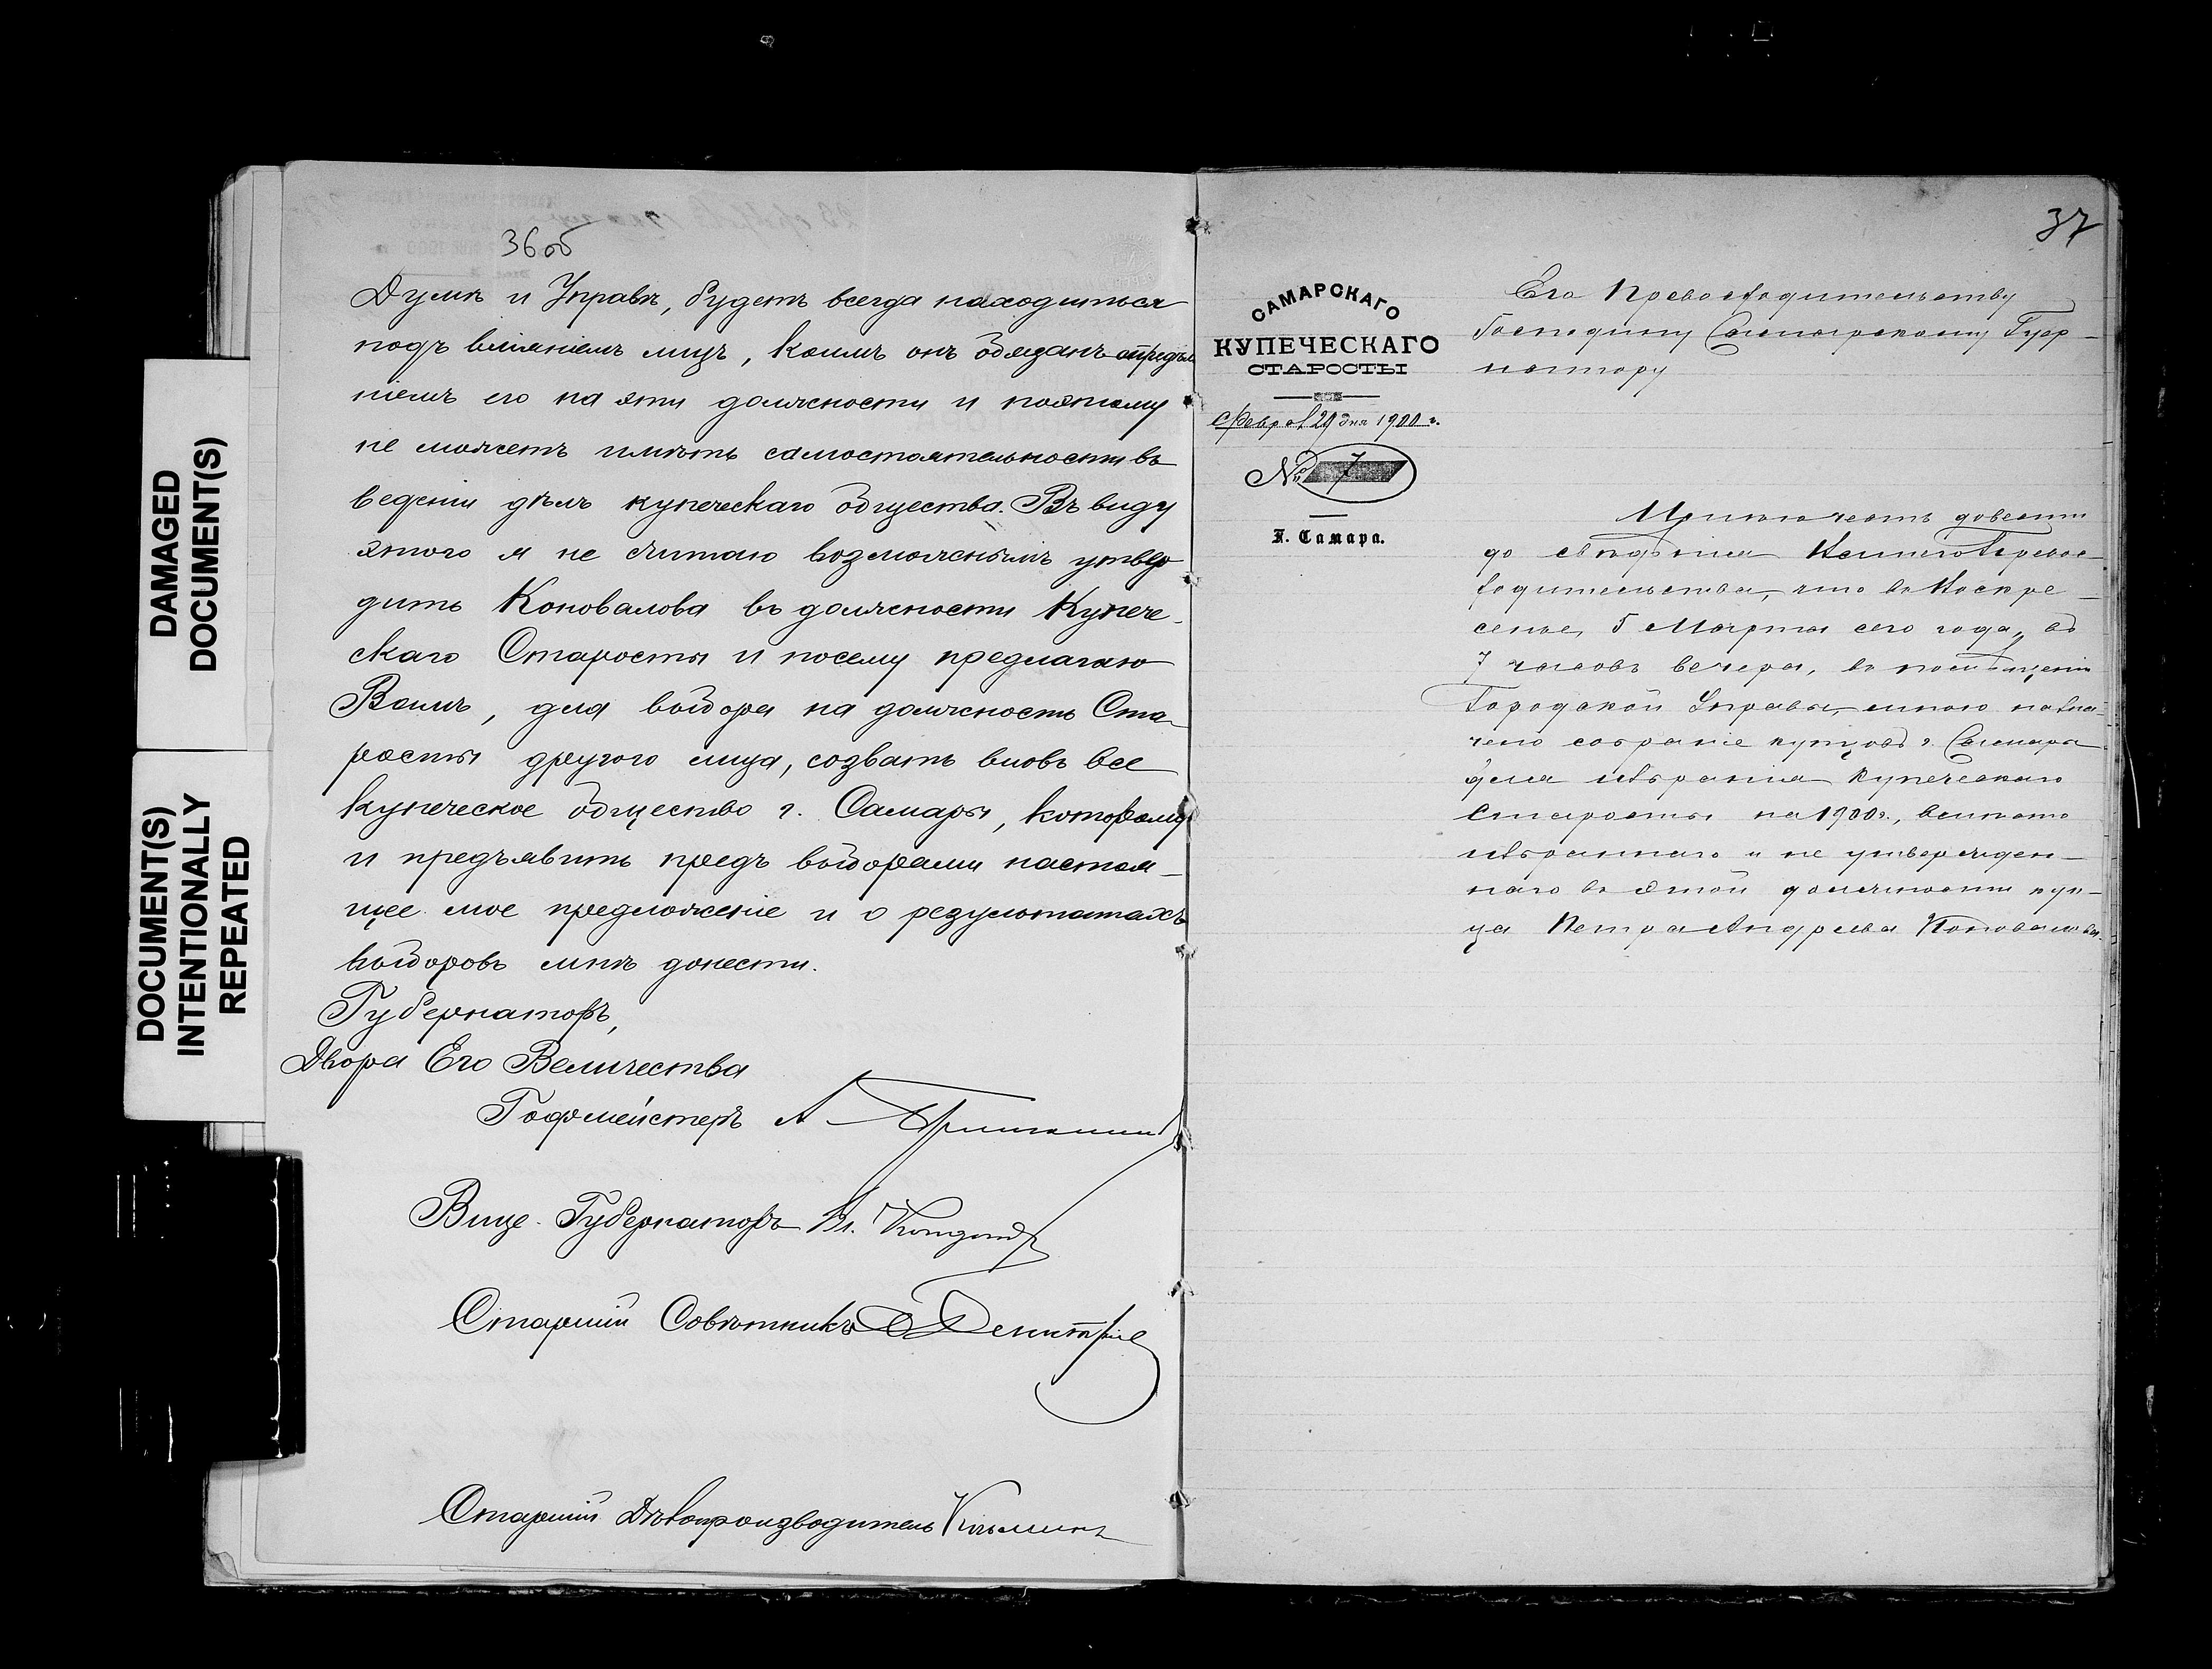 DAMAGED
DOCUMENT(S)
DOCUMENT(S)
INTENTIONALLY
REPEATED
36 об
Думѣ и Управѣ, будетъ всегда находиться
подъ вліяніемъ лицъ, коимъ онъ обязанъ опредѣле
ніемъ его на эти должности и поэтому
не можетъ имѣть самостоятельности въ
веденіи дѣлъ купеческаго общества. Въ виду
этого я не считаю возможнымъ утвер
дить Коновалова въ должности Купече-
скаго Старосты и посему предлагаю
Вамъ, для выбора на должность Ста-
росты другого лица, созвать вновь все
купеческое общество г. Самары, которому
и предъявить предъ выборами настоя-
щее мое предложеніе и о результатахъ
выборовъ мнѣ донести.
Губернаторъ,
Двора Его Величества
Гофмейстеръ А Брянчаниновъ
Вице-Губернаторъ Вл. Кондоиди
Старшій Совѣтникъ
Старшій Дѣлопроизводитель
37
САМАРСКАГО
КУПЕЧЕСКАГО
СТАРОСТЫ
Феврал 29 дня 1900 г.
№ 7
Г. Самара.
Его Превосходительству
Господину Самарскому Губер-
натору
Имѣю честь довести
до свѣдѣнія Вашего Превос-
ходительства, что въ Воскре-
сенье, 5 Марта сего года, въ
7 часовъ вечера, въ помѣщеніи
Городской Управы, мною назна-
чено собраніе купцовъ г. Самары
для избранія Купеческаго
Старосты на 1900 г., вмѣсто
избраннаго и не утвержден-
наго въ этой должности куп-
ца Петра Андреева Коновалова.